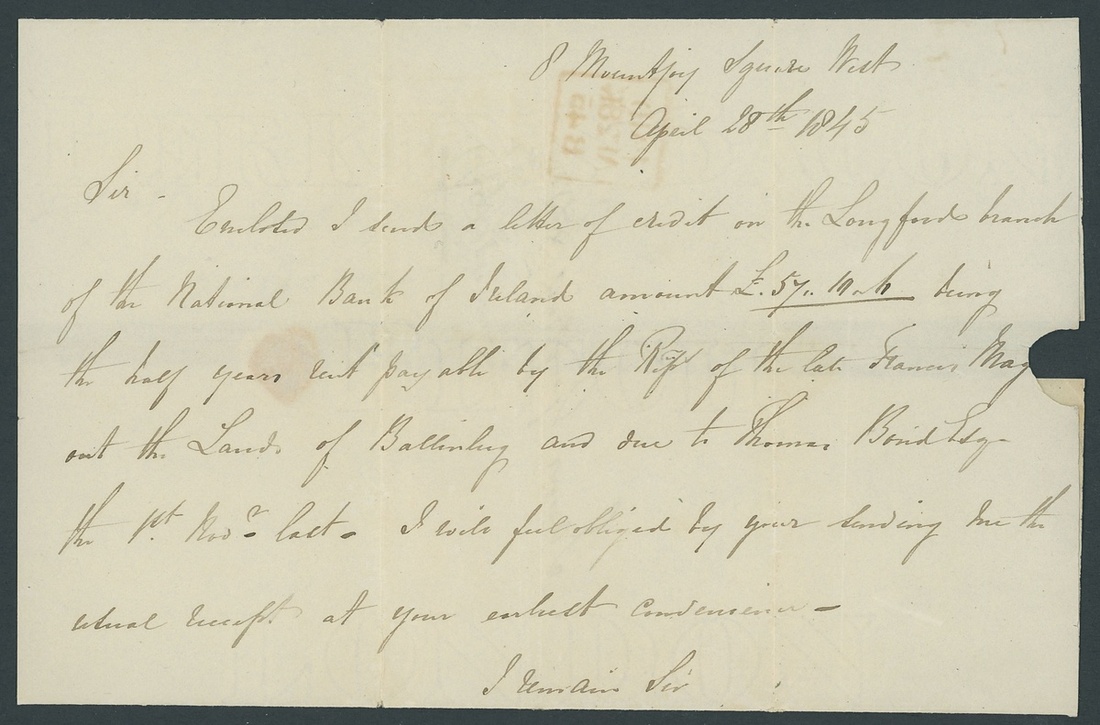 8 Mountjoy Square West
April 28th 1845
Sir -
Enclosed I send a letter of credit on the Longford branch
of the National Bank of Ireland amount £57. being
the half years rent payable by the of the late Francis Mag
out the Lands of Ballinlug and due to Thomas Bond Esqr
the 1st Novr last - I will feel obliged by your sending me the
usual receipt at your earliest convenience -
I remain Sir